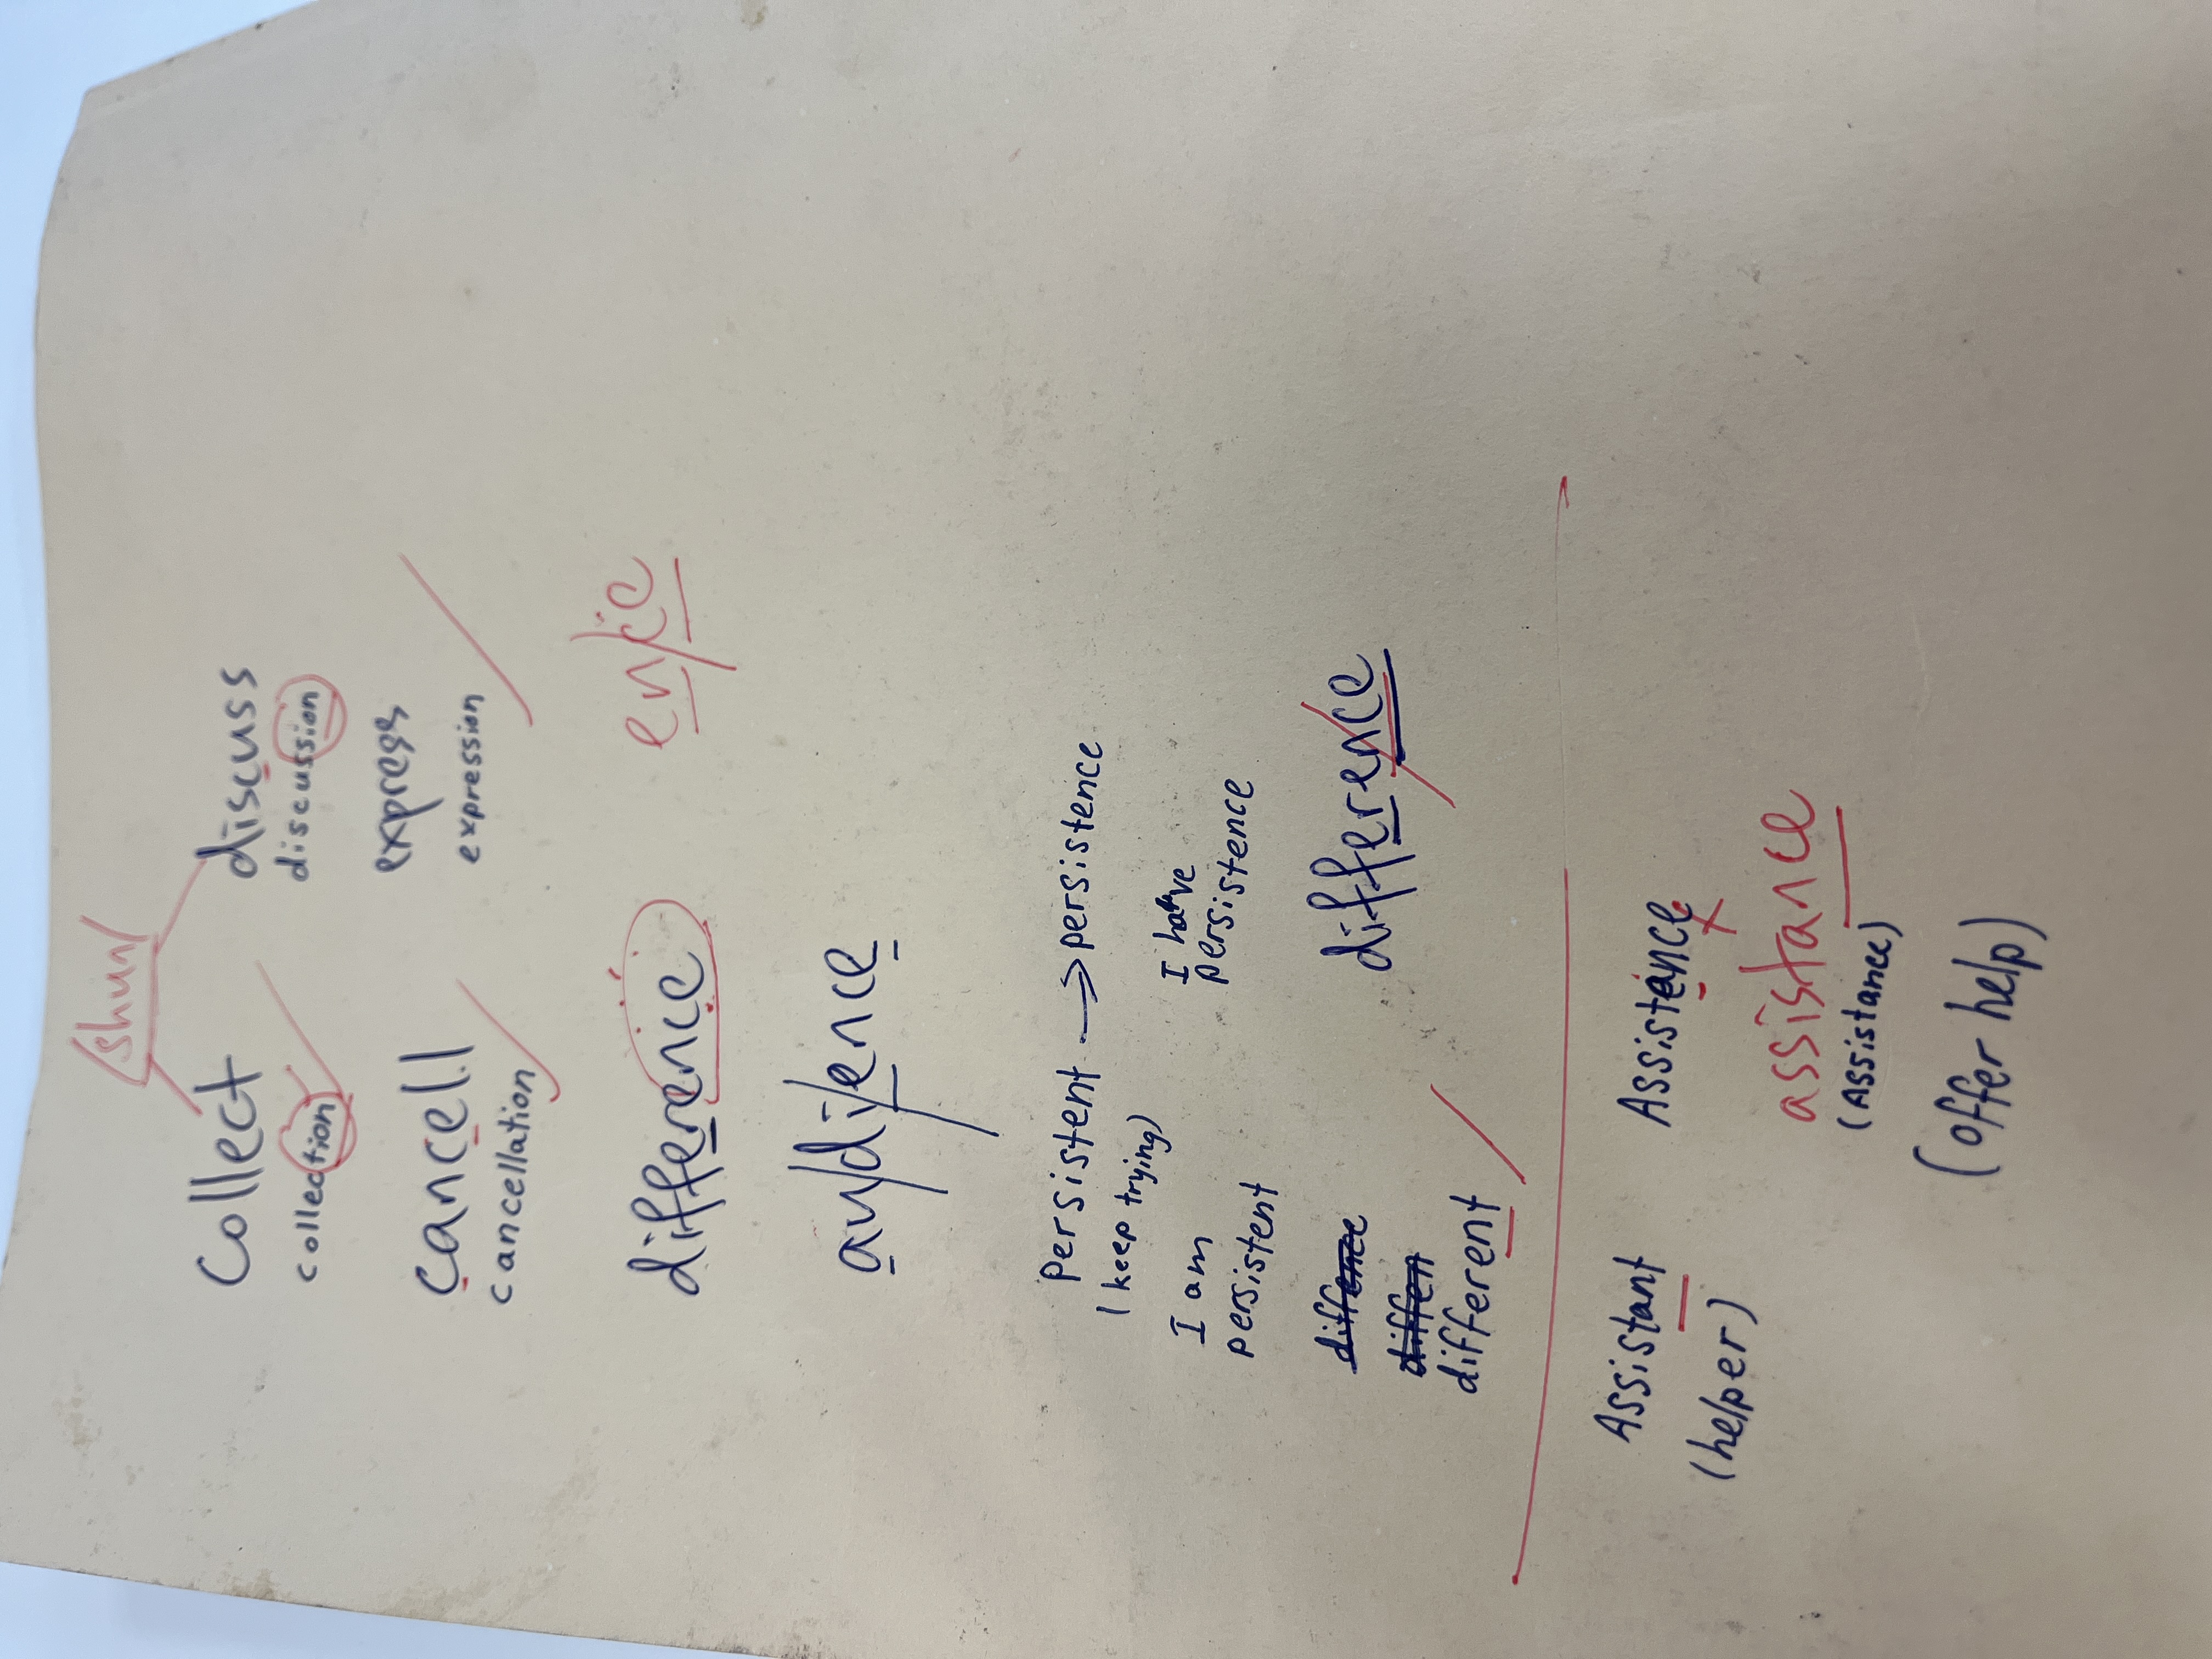 /shun/
collect discuss
collection discussion
cancell express
cancellation expression
difference en/ce
au/di/ence
persistent → persistence
(keep trying)
I am I have
persistent persistence
diffence
differen
different difference
Assistant Assistence
(helper) assistance
(Assistance)
(offer help)